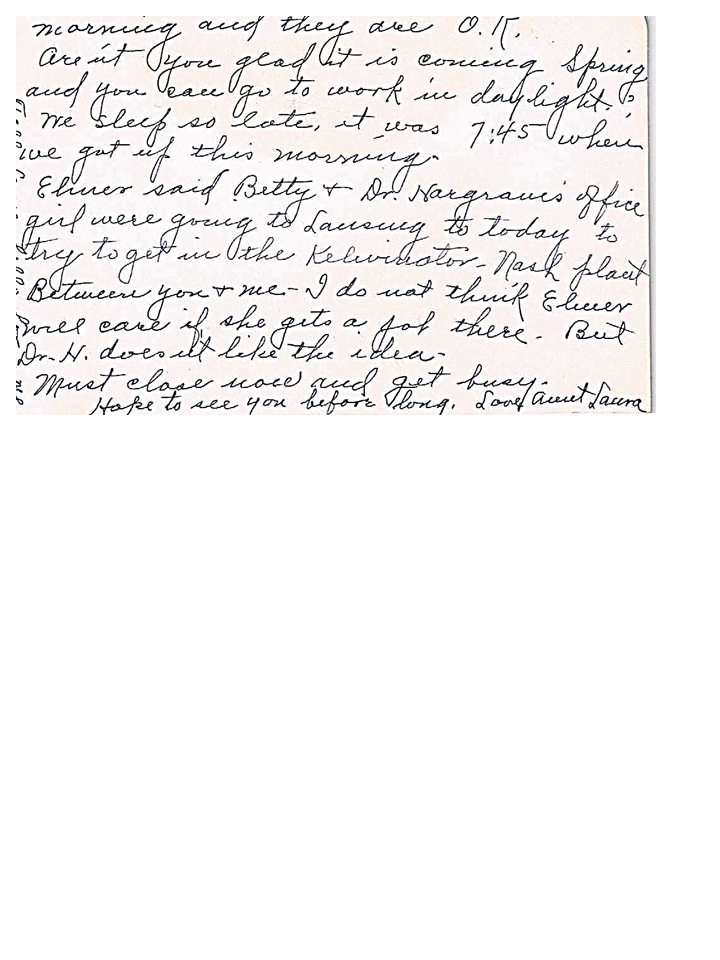 morning and they are O.K.
Are'nt you glad it is coming Spring
and you can go to work in daylight.?
We sleep so late, it was 7:45 when
we got up this morning.
Elmer said Betty & Dr. Hargrave's office
girl were going to Lansing to today to
try to get in the Kelvinator-Nash plant
Between you & me - I do not think Elmer
will care if she gets a job there. But
Dr. H. does'nt like the idea.
Must close now and get busy.
Hope to see you before long. Love, Aunt Laura